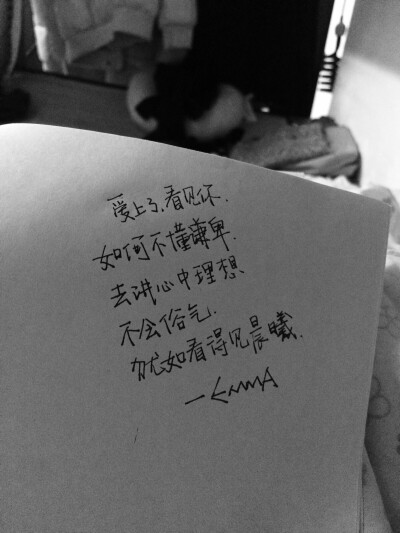 爱上了,看见你.
如何不懂谦卑.
去讲心中理想
不会俗气.
犹如看得见晨曦.
—EMMA